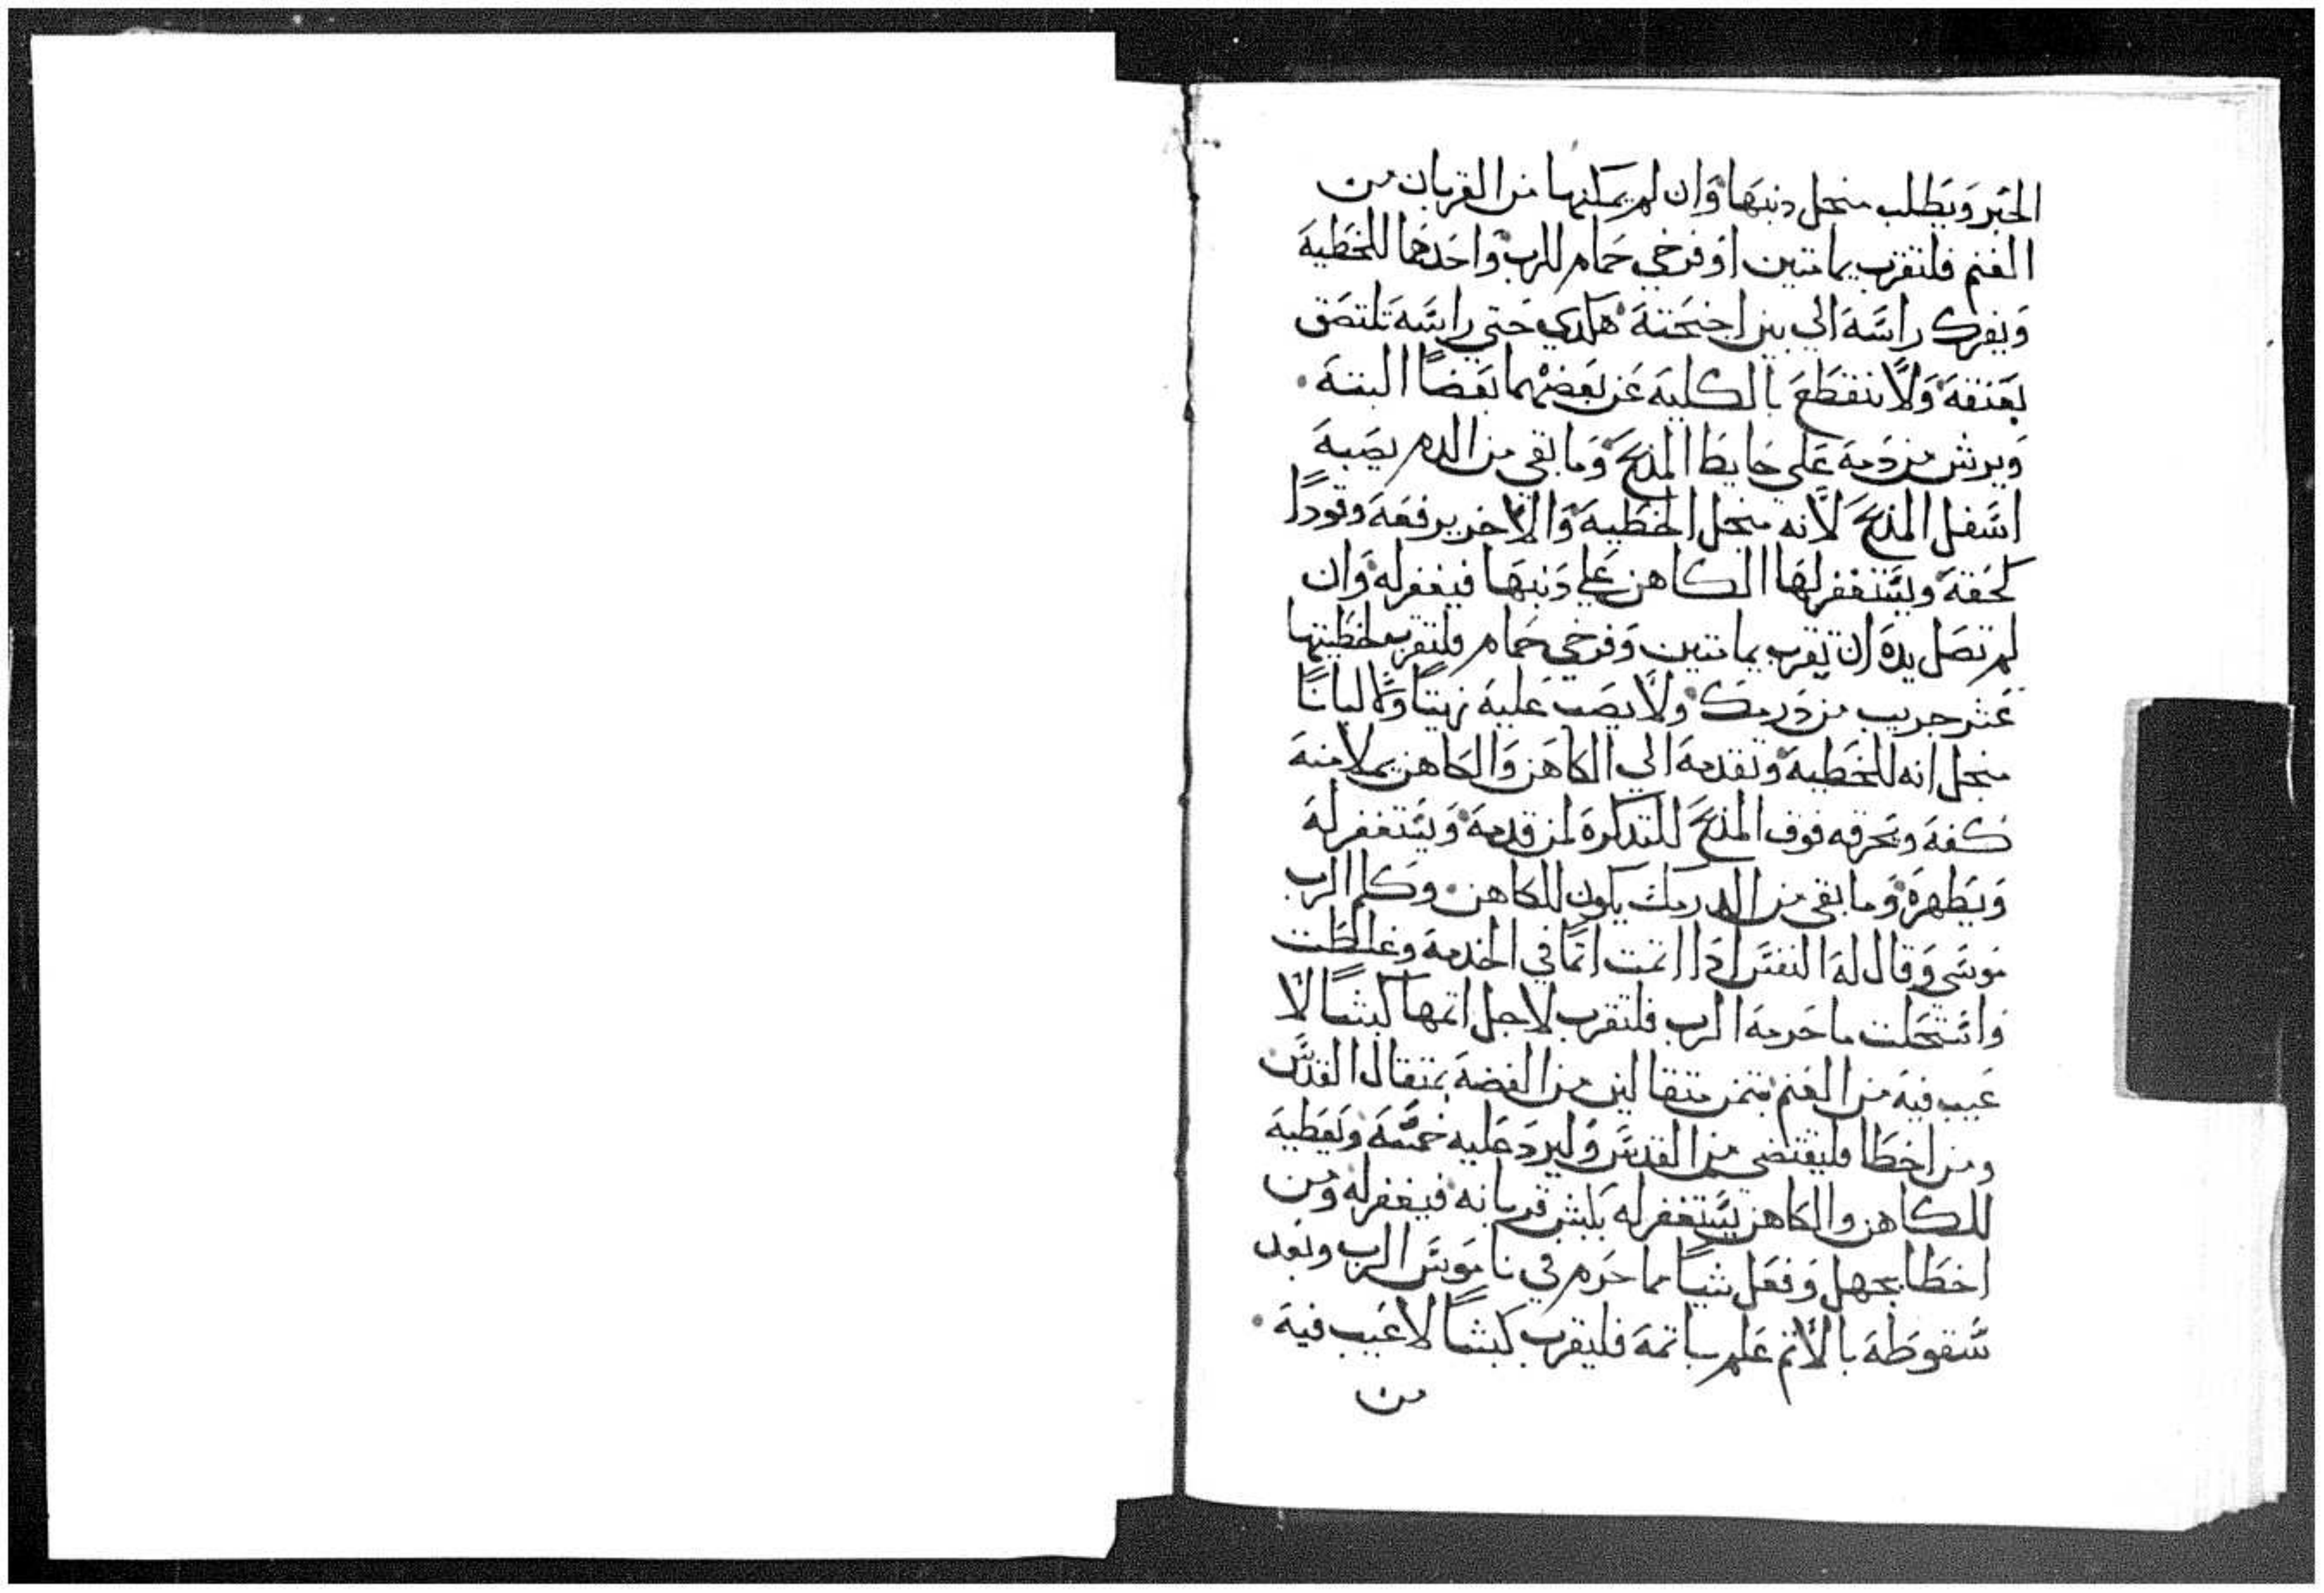 الحبر ويطلب منجل دنبها وان لم يمكنها من القربان من
الغنم فلتقرب يمامتين او فرخي حمام للرب واحدهما للخطية
ويفرك راسه الي بين اجنحته هكدي حتي راسه تلتصق
بعنقه ولا تنقطع بالكلية عن بعضهما بعضا البتة
ويرش من دمه علي حايط المذبح وما بقي من الدم يصبه
اسفل المذبح لانه منجل الخطية والاخر يرفعه وقودا
كحقه ويستغفر لها الكاهن علي دنبها فيغفر له وان
لم تصل يده ان تقرب يمامتين وفرخي حمام فلتقرب لخطيتها
عشر جريب من درمك ولا يصب عليه زيتا ولا لبانا
منجل انه للخطية وتقدمه الي الكاهن والكاهن يملا منه
كفه ويحرقه فوق المذبح للتدكرة لمن قدمه ويستغفر له
ويطهره وما بقي من الدرمك يكون للكاهن وكلم الرب
موسي وقال له النفس ادا اتمت اتما في الخدمة وغلطت
واستحلت ما حرمه الرب فلتقرب لاجل اتمها كبشا لا
عيب فيه من الغنم بتمن متقالين من الفضة بمتقال القدس
ومن اخطا فليقتضي من القدس وليرد عليه خمسه ويعطيه
للكاهن والكاهن يستغفر له بكبش قربانه فيغفر له ومن
اخطا بجهل وفعل شيا مما حرم في ناموس الرب وبعد
سقوطه بالاتم علم باتمه فليقرب كبشا لا عيب فيه
من